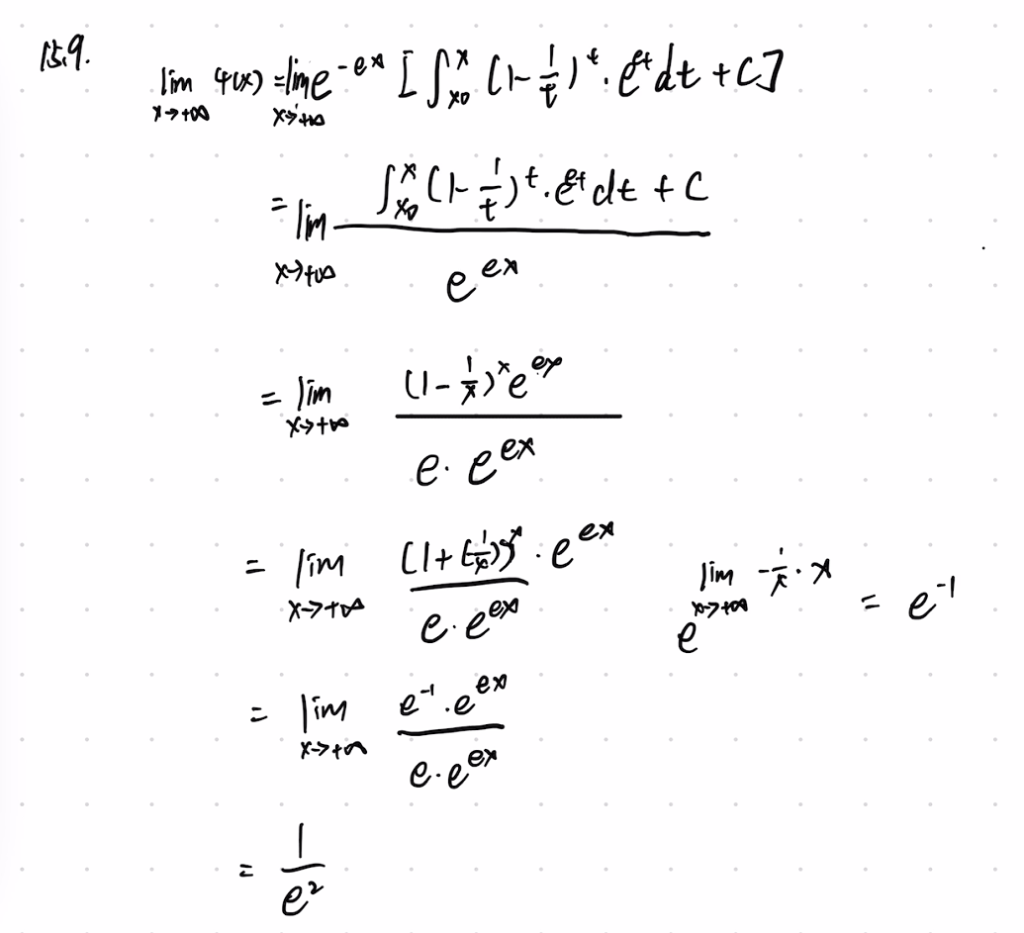 15.9.
lim_{x→+∞} φ(x) = lim_{x→+∞} e^{-ex} [∫_{x0}^{x} (1-1/t)^t · e^{et} dt + C]
= lim_{x→+∞} (∫_{x0}^{x} (1-1/t)^t · e^{et} dt + C) / e^{ex}
= lim_{x→+∞} ((1-1/x)^x e^{ex}) / (e · e^{ex})
= lim_{x→+∞} ((1+(-1/x))^x · e^{ex}) / (e · e^{ex})
e^{lim_{x→+∞} -1/x · x} = e^{-1}
= lim_{x→+∞} (e^{-1} · e^{ex}) / (e · e^{ex})
= 1/e^2